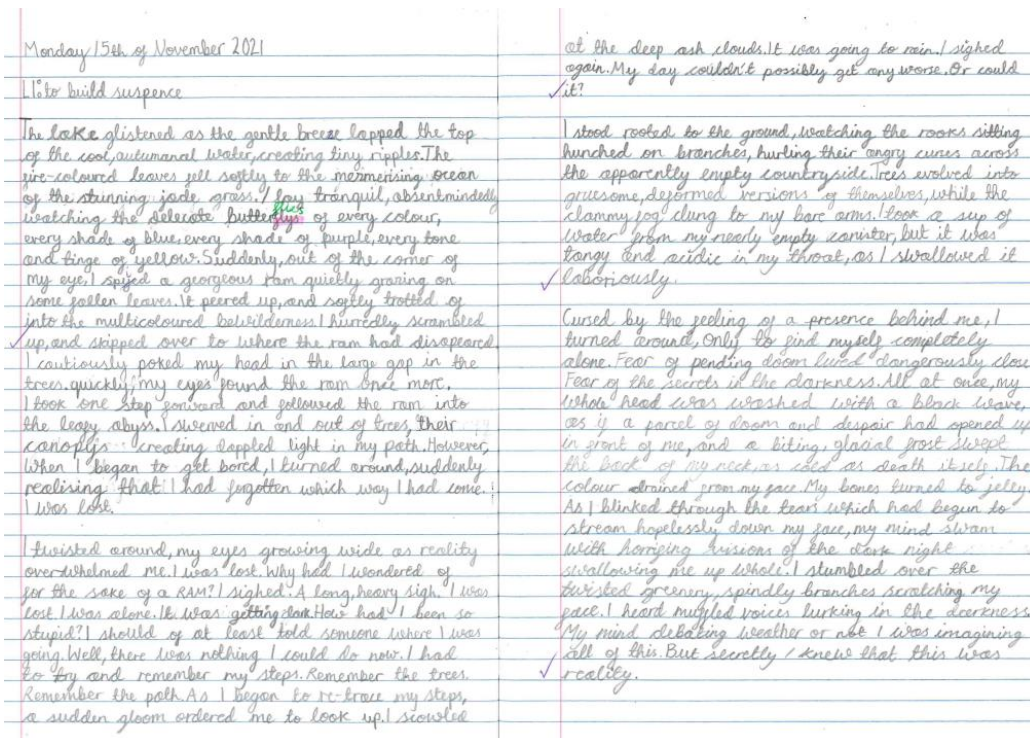 Monday 15th of November 2021
LI: to build suspence
The lake glistened as the gentle breeze lapped the top
of the cool, autumanal water, creating tiny ripples. The
fire-coloured leaves fell softly to the mezmerising ocean
of the stunning jade grass. I lay tranquil, absentmindedly
watching the delecate butterflys flies of every colour,
every shade of blue, every shade of purple, every tone
and tinge of yellow. Suddenly, out of the corner of
my eye, I spied a georgeous ram quietly grazing on
some fallen leaves. It peered up, and softly trotted of
into the multicoloured bewilderness. I hurredly scrambled
up, and skipped over to where the ram had disapeared.
I cautiously poked my head in the large gap in the
trees. quickly, my eyes found the ram once more.
I took one step forward and followed the ram into
the leafy abyss. I swerved in and out of trees, their
canopys creating dappled light in my path. However,
when I began to get bored, I turned around, suddenly
realising that I had forgotten which way I had come.
I was lost.
I twisted around, my eyes growing wide as reality
overwhelmed me. I was lost. Why had I wondered of
for the sake of a RAM? I sighed. A long, heavy sigh. I was
lost. I was alone. It was getting dark. How had I been so
stupid? I should of at least told someone where I was
going. Well, there was nothing I could do now. I had
to try and remember my steps. Remember the trees.
Remember the path. As I began to re-trace my steps,
a sudden gloom ordered me to look up. I scowled
at the deep ash clouds. It was going to rain. I sighed
again. My day couldn't possibly get any worse. Or could
it?
I stood rooted to the ground, watching the rooks sitting
hunched on branches, hurling their angry curses across
the apparently empty countryside. Trees evolved into
gruesome, deformed versions of themselves, while the
clammy fog clung to my bare arms. I took a sup of
water from my nearly empty canister, but it was
tangy and acidic in my throat, as I swallowed it
laboriously.
Cursed by the feeling of a presence behind me, I
turned around, Only to find myself completely
alone. Fear of pending doom lured dangerously close
Fear of the secrets in the darkness. All at once, my
whole head was washed with a black wave,
as if a parcel of doom and despair had opened up
in front of me, and a biting, glacial frost swept
the back of my neck, as cold as death itself. The
colour drained from my face. My bones turned to jelly.
As I blinked through the tears which had begun to
stream hopelessly down my face, my mind swam
with horrifing visions of the dark night
swallowing me up whole. I stumbled over the
twisted greenery, spindly branches scratching my
face. I heard muffled voices lurking in the deerkness
My mind debating weather or not I was imagining
all of this. But secretly I knew that this was
reality.